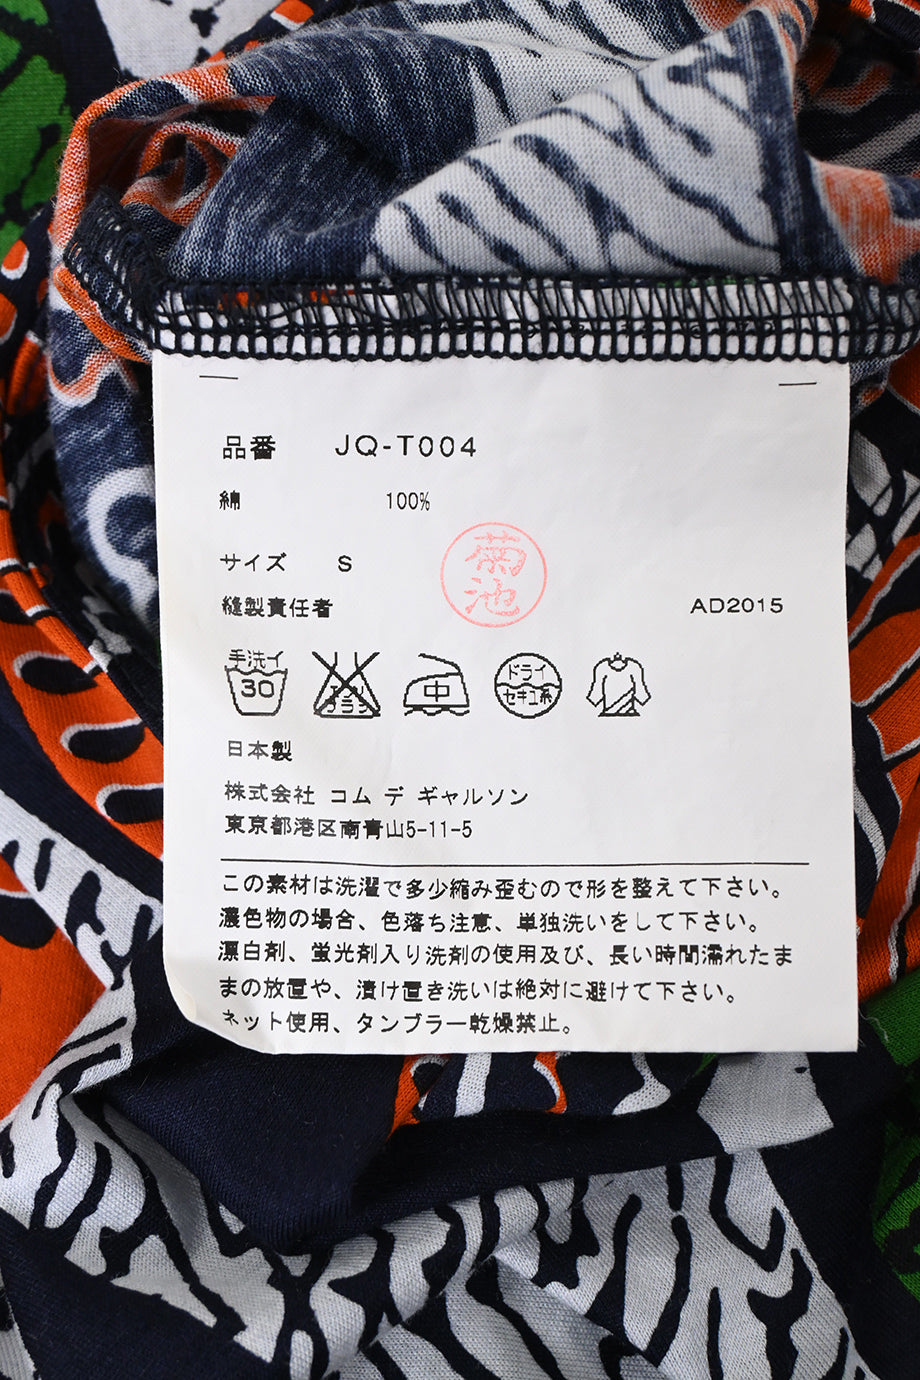 品番 JQ-T004
綿 100%
サイズ S
菊池
縫製責任者 AD2015
手洗イ 30 エンソ サラシ 中 ドライ セキユ系
日本製
株式会社 コム デ ギャルソン
東京都港区南青山5-11-5
この素材は洗濯で多少縮み歪むので形を整えて下さい。
濃色物の場合、色落ち注意、単独洗いをして下さい。
漂白剤、蛍光剤入り洗剤の使用及び、長い時間濡れたま
まの放置や、漬け置き洗いは絶対に避けて下さい。
ネット使用、タンブラー乾燥禁止。